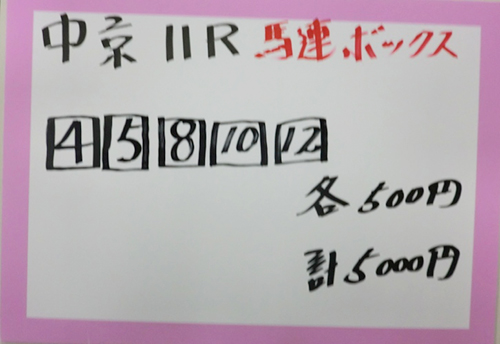 中京 11R 馬連ボックス
4 5 8 10 12
各500円
計5000円